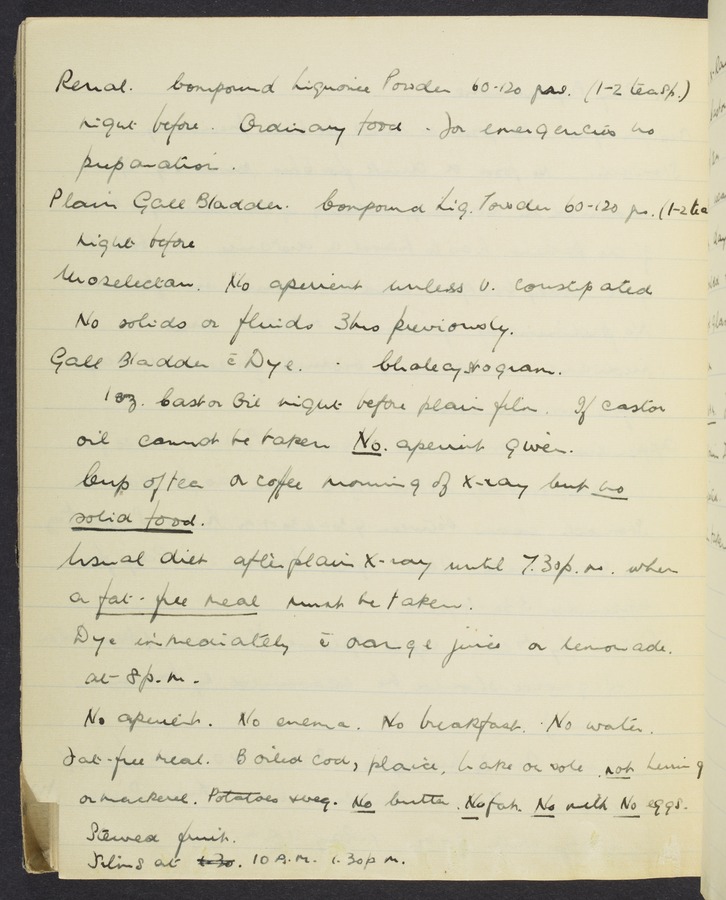 Renal. Compound Liquorice Powder 60-120 grs. (1-2 teasp.)
night before. Ordinary food. For emergencies no
preparation.
Plain Gall Bladder. Compound Liq. Powder 60-120 grs. (1-2 tea
night before
Uroselectan. No aperient unless v. constipated
No solids or fluids 3hrs previously.
Gall Bladder c̄ Dye. - Cholecystogram.
1 oz. Castor Oil night before plain film. If castor
oil cannot be taken No. aperient given.
Cup of tea or coffee morning of X-ray but no
solid food.
Usual diet after plain X-ray until 7.30p.m. when
a fat-free meal must be taken.
Dye immediately c̄ orange juice or lemonade.
at 8p.m.
No aperient. No enema. No breakfast. No water.
Fat-free meal. Boiled cod, plaice, hake or sole not herring
or mackerel. Potatoes & veg. No butter. No fat. No milk No eggs.
Stewed fruit.
Films at 10 A.M. 1.30p.m.